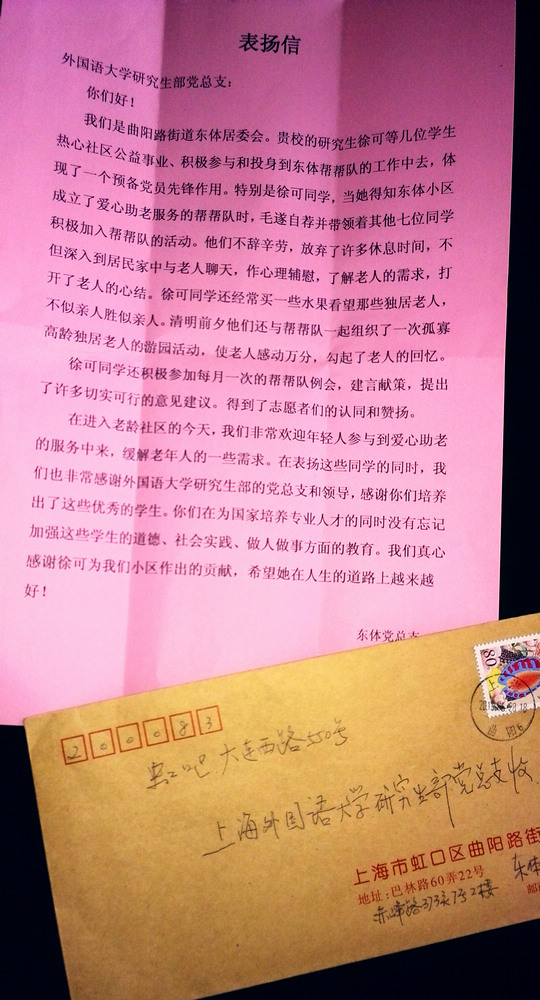 表扬信
外国语大学研究生部党总支：
你们好！
我们是曲阳路街道东体居委会。贵校的研究生徐可等几位学生
热心社区公益事业、积极参与和投身到东体帮帮队的工作中去，体
现了一个预备党员先锋作用。特别是徐可同学，当她得知东体小区
成立了爱心助老服务的帮帮队时，毛遂自荐并带领着其他七位同学
积极加入帮帮队的活动。他们不辞辛劳，放弃了许多休息时间，不
但深入到居民家中与老人聊天，作心理辅慰，了解老人的需求，打
开了老人的心结。徐可同学还经常买一些水果看望那些独居老人，
不似亲人胜似亲人。清明前夕他们还与帮帮队一起组织了一次孤寡
高龄独居老人的游园活动，使老人感动万分，勾起了老人的回忆。
徐可同学还积极参加每月一次的帮帮队例会，建言献策，提出
了许多切实可行的意见建议。得到了志愿者们的认同和赞扬。
在进入老龄社区的今天，我们非常欢迎年轻人参与到爱心助老
的服务中来，缓解老年人的一些需求。在表扬这些同学的同时，我
们也非常感谢外国语大学研究生部的党总支和领导，感谢你们培养
出了这些优秀的学生。你们在为国家培养专业人才的同时没有忘记
加强这些学生的道德、社会实践、做人做事方面的教育。我们真心
感谢徐可为我们小区作出的贡献，希望她在人生的道路上越来越
好！
东体党总支
80
200083
大连西路550号
上海外国语大学研究生部党总支收
上海市虹口区曲阳路街
地址：巴林路60弄22号
东体
赤峰路373弄7号2楼
邮